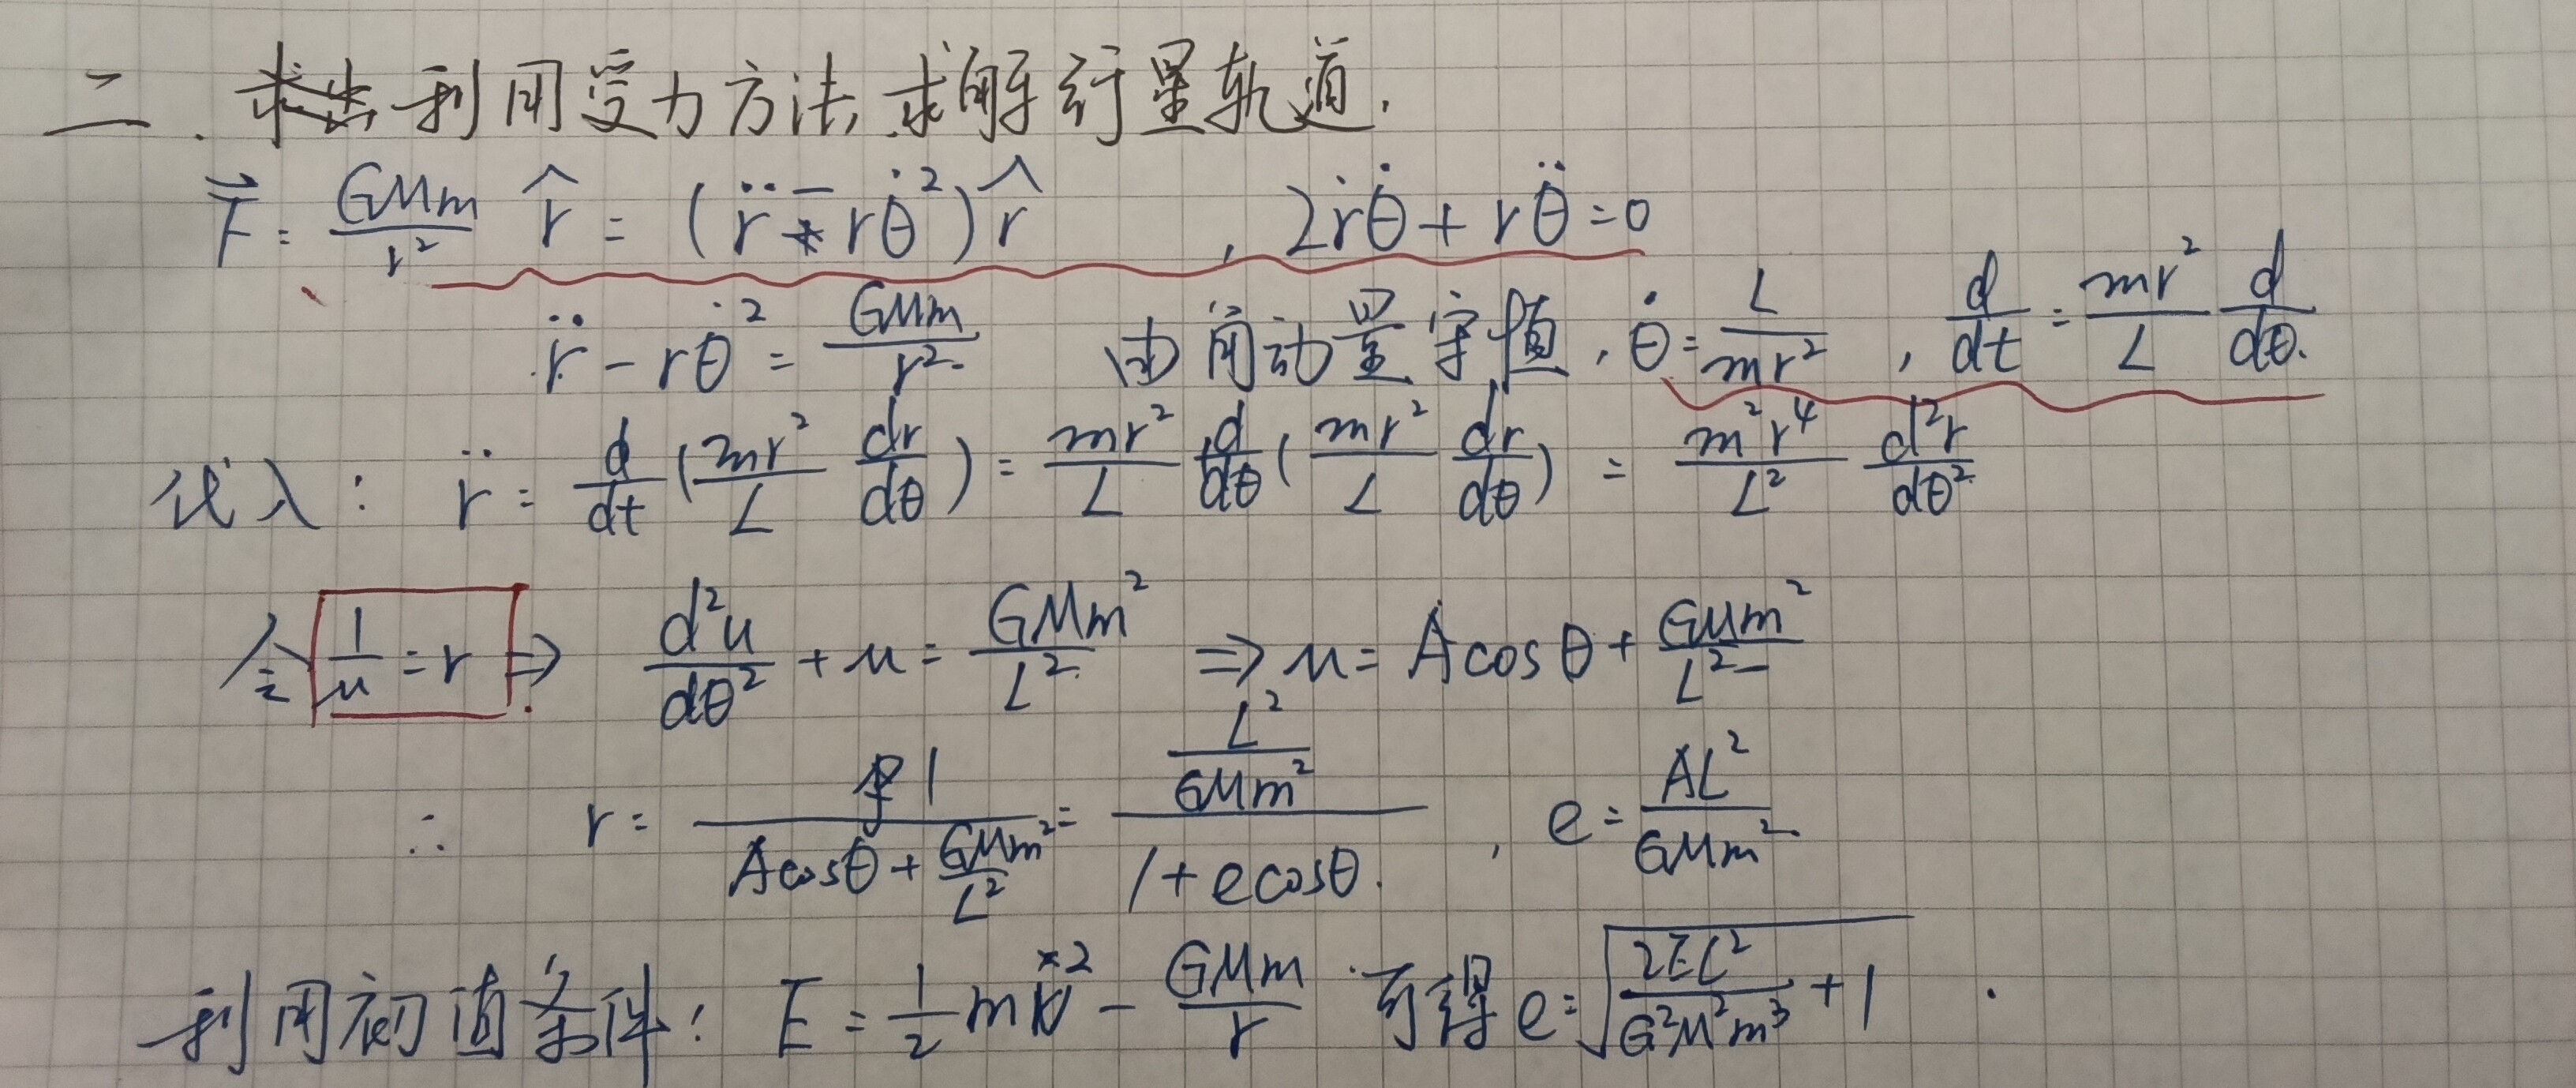 二. 利用受力方法求解行星轨道.
F⃗ = GMm/r² r̂ = (r̈ - rθ̇²) r̂ , 2ṙθ̇ + rθ̈ = 0
r̈ - rθ̇² = GMm/r² 由角动量守恒, θ̇ = L/mr² , d/dt = mr²/L d/dθ.
代入: r̈ = d/dt (mr²/L dr/dθ) = mr²/L d/dθ (mr²/L dr/dθ) = m²r⁴/L² d²r/dθ²
令 1/u = r ⇒ d²u/dθ² + u = GMm²/L² ⇒ u = A cosθ + GMm²/L²
∴ r = 1/(A cosθ + GMm²/L²) = (L²/GMm²)/(1 + e cosθ) , e = AL²/GMm²
利用初值条件: E = 1/2 mv² - GMm/r 可得 e = √(2EL²/G²M²m³ + 1) .